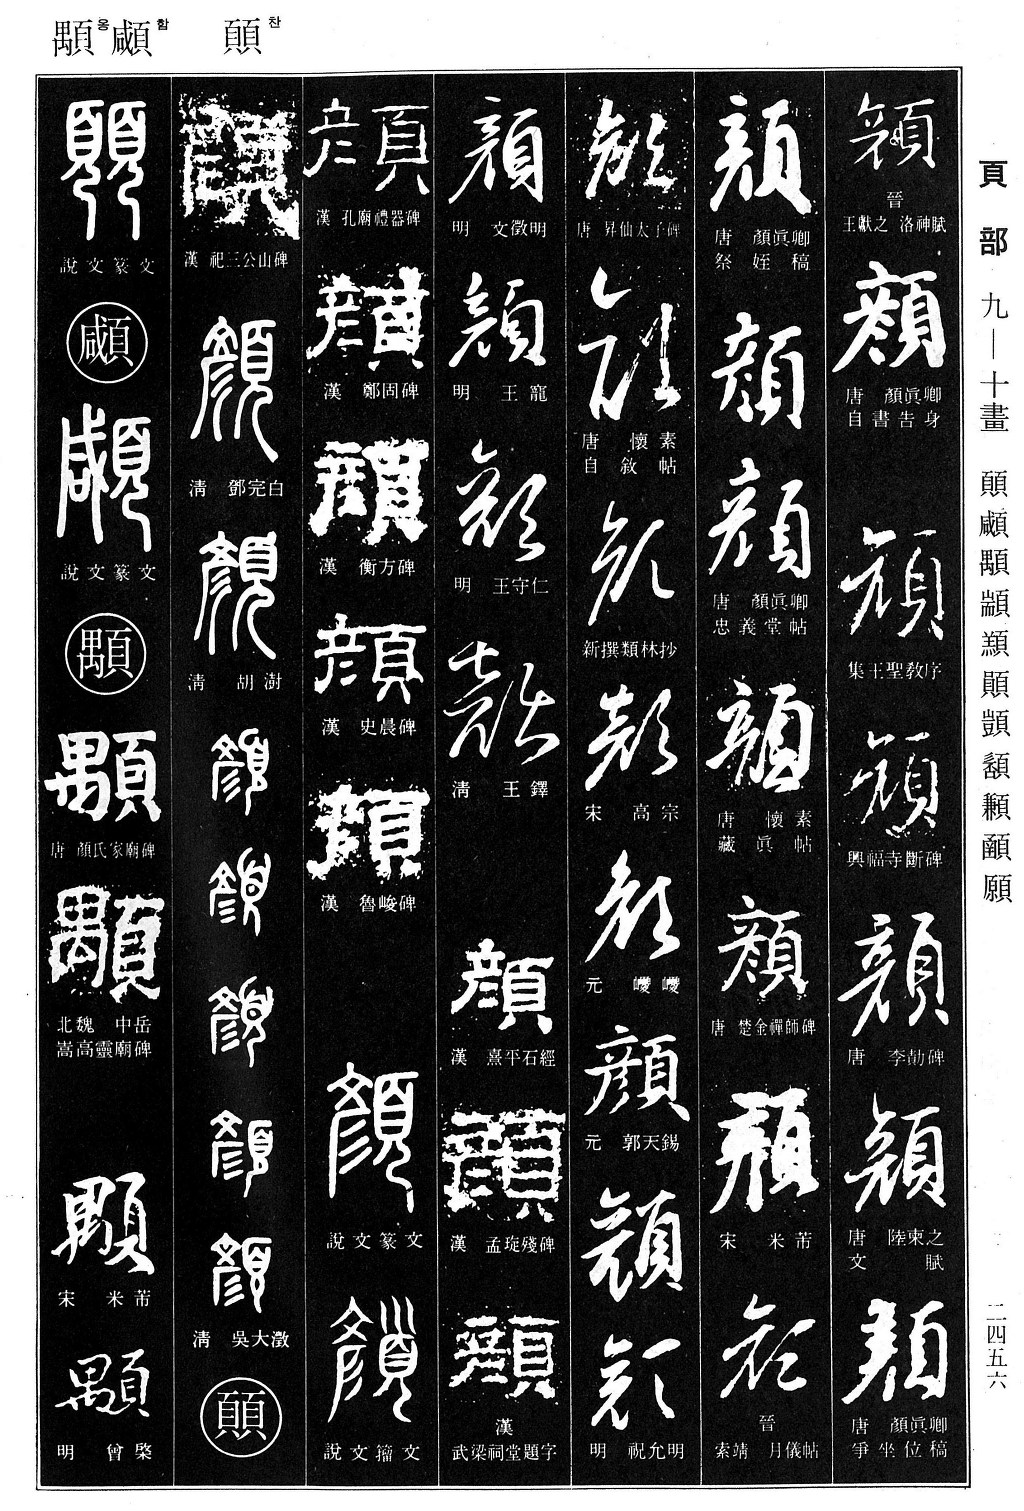 찬
顑함
顒옹
頁部 九—十畫 顑顒顓類顗願
二四五六
顏
晉
王獻之 洛神賦
顏
唐 顏眞卿
自書告身
顏
集王聖教序
顏
興福寺斷碑
顏
唐 李邕碑
顏
唐 陸柬之
文賦
顏
唐 顏眞卿
爭坐位稿
顏
唐 顏眞卿
祭姪稿
顏
顏
唐 顏眞卿
忠義堂帖
顏
唐 懷素
藏眞帖
顏
唐 楚金禪師碑
顏
宋 米芾
顏
晉
索靖 月儀帖
顏
唐 昇仙太子碑
顏
唐 懷素
自敘帖
顏
新撰類林抄
顏
宋 高宗
顏
元 巙巙
顏
元 郭天錫
顏
顏
明 祝允明
顏
明 文徵明
顏
明 王寵
顏
明 王守仁
顏
淸 王鐸
顏
漢 熹平石經
顏
漢 孟琁殘碑
顏
漢
武梁祠堂題字
顏
漢 孔廟禮器碑
顏
漢 鄭固碑
顏
漢 衡方碑
顏
漢 史晨碑
顏
漢 魯峻碑
顏
說文篆文
顏
說文籀文
顏
漢 祀三公山碑
顏
淸 鄧完白
顏
淸 胡澍
顏
顏
顏
顏
顏
淸 吳大澂
說文篆文
顑
顑
說文篆文
顒
顒
唐 顏氏家廟碑
顒
北魏 中岳
嵩高靈廟碑
顒
宋 米芾
顒
明 曾棨